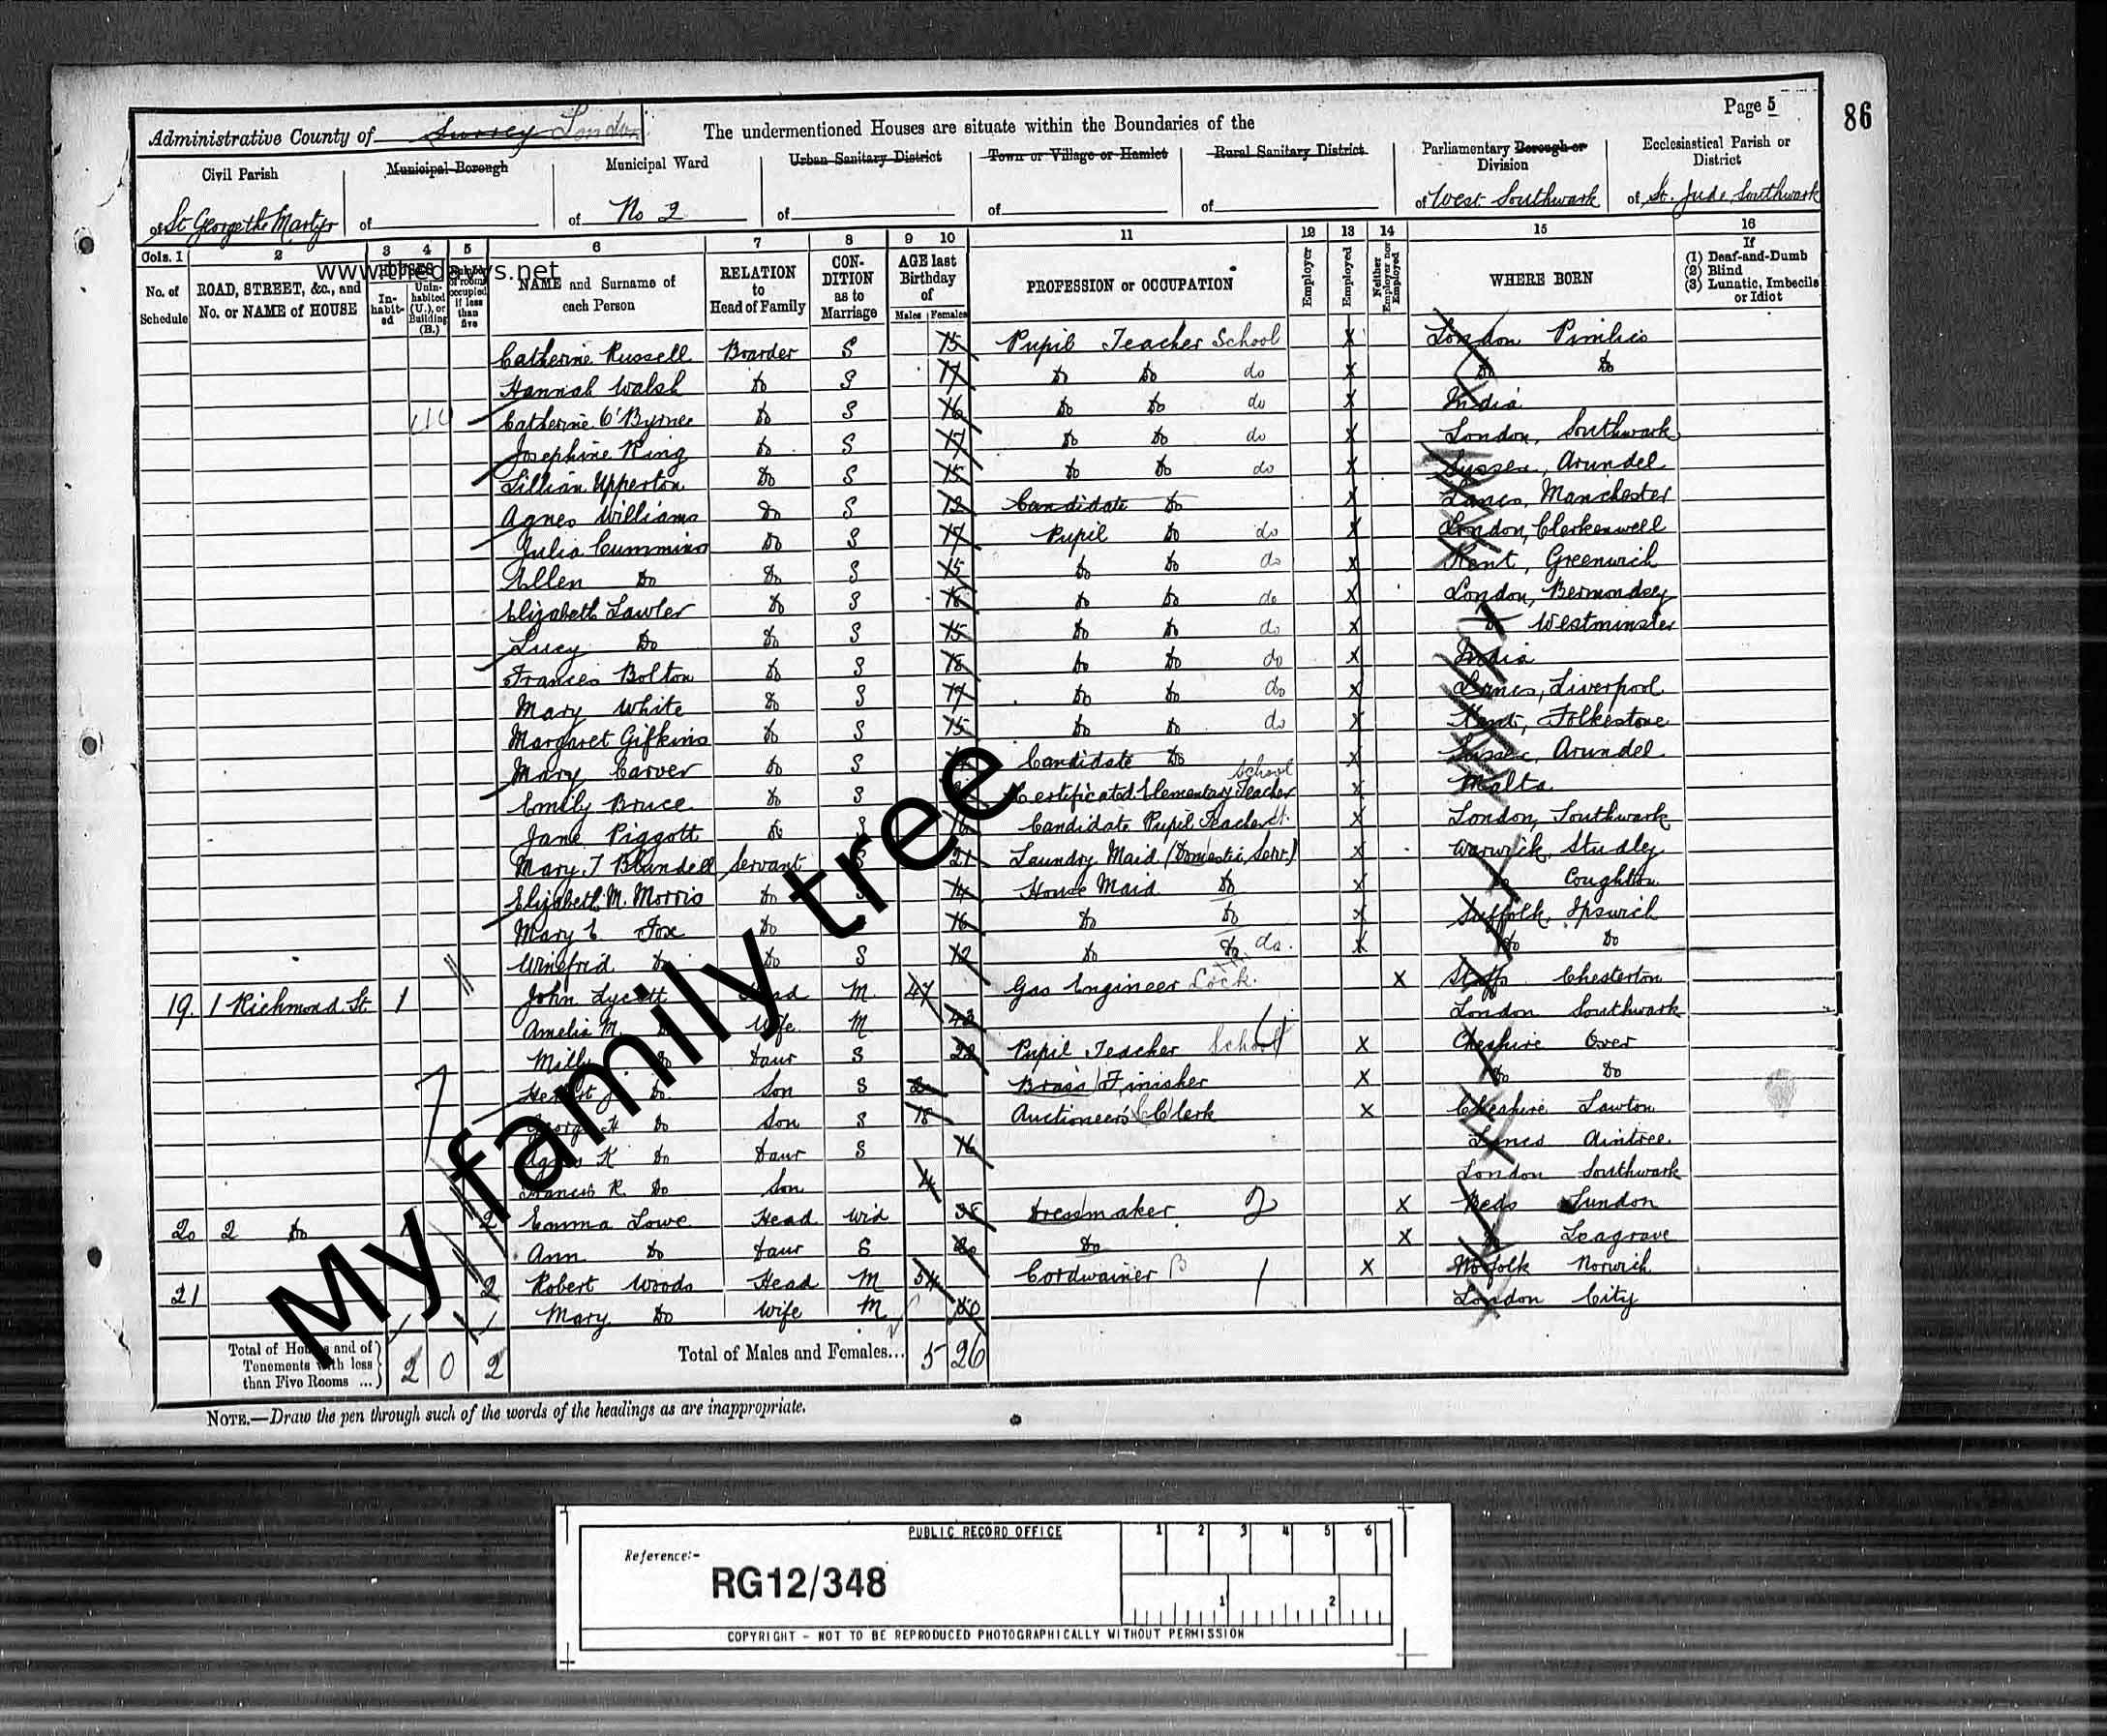 Page 5
86
Administrative County of Surrey London
The undermentioned Houses are situate within the Boundaries of the
Civil Parish
Municipal Borough
Municipal Ward
Urban Sanitary District
Town or Village or Hamlet
Rural Sanitary District
Parliamentary Borough or Division
Ecclesiastical Parish or District
of St George the Martyr
of
of No 2
of
of
of
of West Southwark
of St. Jude, Southwark
Cols. 1 2 3 4 5 6 7 8 9 10 11 12 13 14 15 16
No. of Schedule
ROAD, STREET, &c., and No. or NAME of HOUSE
HOUSES
In-habit-ed
Unin-habited (U.), or Building (B.)
Number of rooms occupied if less than five
www.thedavys.net
NAME and Surname of each Person
RELATION to Head of Family
CON-DITION as to Marriage
AGE last Birthday of
Males Females
PROFESSION or OCCUPATION
Employer
Employed
Neither Employer nor Employed
WHERE BORN
If
(1) Deaf-and-Dumb
(2) Blind
(3) Lunatic, Imbecile or Idiot
Catherine Russell Boarder S 15 Pupil Teacher School X London Pimlico
Hannah Walsh Do S 17 Do Do do X Do Do
Catherine O'Byrne Do S 16 Do Do do X India
Josephine Ring Do S 17 Do Do do X London, Southwark
Lillian Upperton Do S 15 Do Do do X Sussex, Arundel
Agnes Williams Do S Candidate Do X Lancs, Manchester
Julia Cummins Do S 17 Pupil Do do X London, Clerkenwell
Ellen Do Do S 15 Do Do do X Kent, Greenwich
Elizabeth Lawler Do S Do Do do X London, Bermondsey
Lucy Do Do S 15 Do Do do X Do Westminster
Frances Bolton Do S 18 Do Do do X India
Mary White Do S 17 Do Do do X Lancs, Liverpool
Margaret Gifkins Do S 15 Do Do do X Kent, Folkestone
Mary Carver Do S Candidate Do X Sussex, Arundel
Emily Bruce Do S Certificated Elementary School Teacher X Malta
Jane Piggott Do S 16 Candidate Pupil Teacher X London, Southwark
Mary J Blundell Servant S 21 Laundry Maid (Domestic Serv.) X Warwick, Studley
Elizabeth M. Morris Do S 14 House Maid Do X Do Coughton
Mary E Fox Do 16 Do Do X Suffolk, Ipswich
Winefrid Do Do S Do Do do. X Do Do
19 1 Richmond St. 1 John Lycett Head M 47 Gas Engineer X Staffs Chesterton
Amelia M. Do Wife M 43 London Southwark
Do Daur S Pupil Teacher School X Cheshire Over
Do Son S Brass Finisher X Do Do
George H Do Son S 18 Auctioneer's Clerk X Cheshire Lawton
Agnes K Do Daur S 16 Lancs Aintree
Francis R. Do Son 4 London Southwark
20 2 Do 1 2 Emma Lowe Head Wid Dressmaker 2 X Beds Sundon
Ann Do Daur S Do X Do Leagrave
21 2 Robert Woods Head M 54 Cordwainer X Norfolk Norwich
Mary Do Wife M London City
Total of Houses and of Tenements with less than Five Rooms ... 2 0 2
Total of Males and Females... 5 26
NOTE.—Draw the pen through such of the words of the headings as are inappropriate.
My family tree
PUBLIC RECORD OFFICE
1 2 3 4 5 6
Reference:-
RG12/348
1 2
COPYRIGHT - NOT TO BE REPRODUCED PHOTOGRAPHICALLY WITHOUT PERMISSION